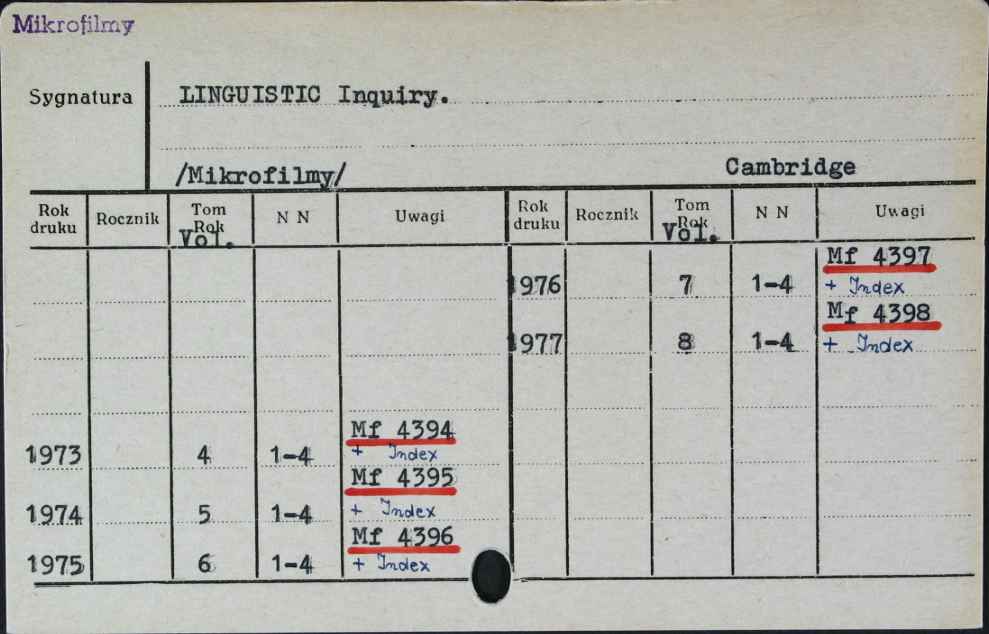 Mikrofilmy
Sygnatura LINGUISTIC Inquiry.
/Mikrofilmy/ Cambridge
Rok druku Rocznik Tom Rok Vol. N N Uwagi Rok druku Rocznik Tom Rok Vol. N N Uwagi
Mf 4397
1976 7 1-4 + Index
Mf 4398
1977 8 1-4 + Index
Mf 4394
1973 4 1-4 + Index
Mf 4395
1974 5 1-4 + Index
Mf 4396
1975 6 1-4 + Index